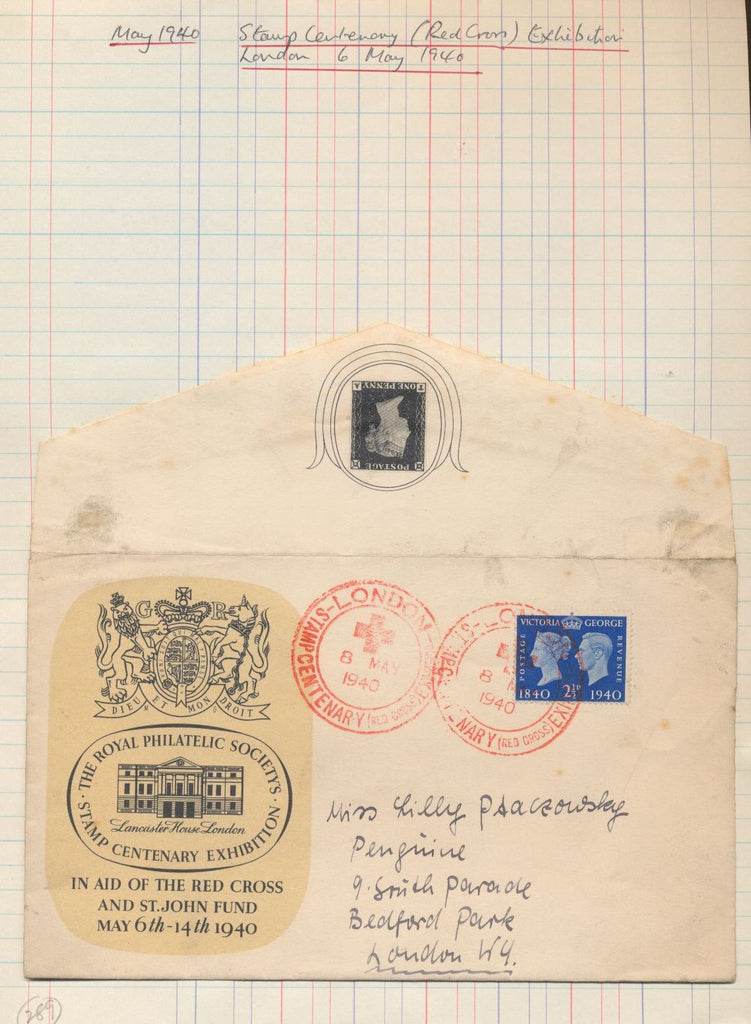 May 1940 Stamp Centenary (Red Cross) Exhibition
London 6 May 1940
ONE PENNY
POSTAGE
G R
DIEU ET MON DROIT
· THE ROYAL PHILATELIC SOCIETY'S ·
Lancaster House London
STAMP CENTENARY EXHIBITION
IN AID OF THE RED CROSS
AND ST. JOHN FUND
MAY 6th-14th 1940
LONDON
8 MAY
1940
STAMP CENTENARY (RED CROSS)
LON
8 M
1940
STAMP
ENTENARY (RED CROSS) EXH
VICTORIA GEORGE
POSTAGE
REVENUE
1840 2½D 1940
Miss Lilly
Penguine
9. South Parade
Bedford Park
London W4.
289